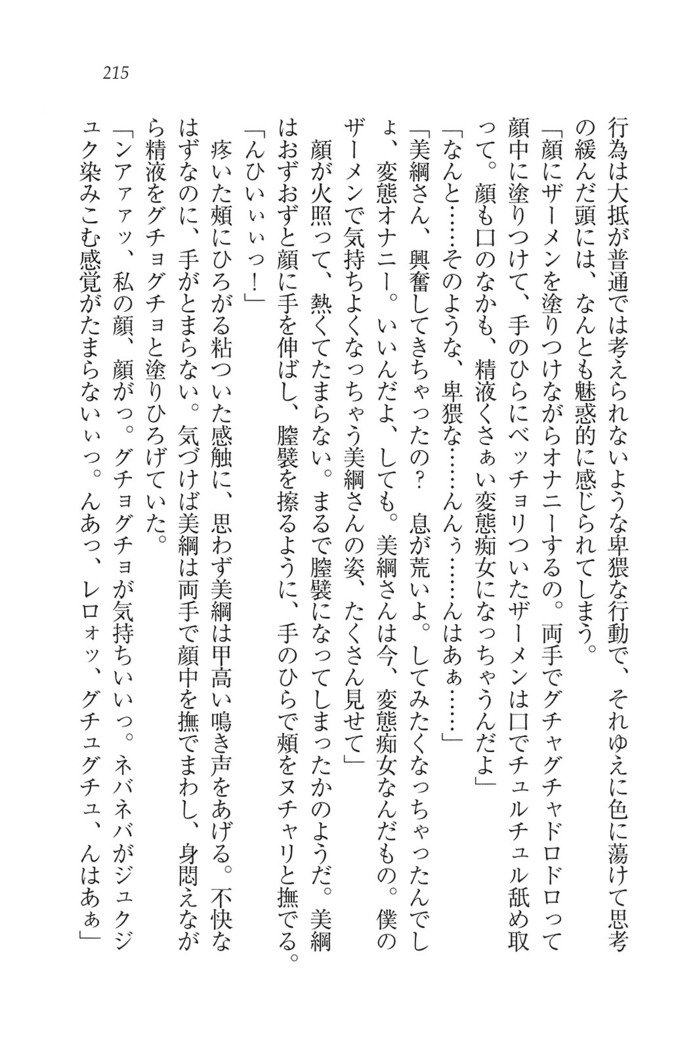 215
行為は大抵が普通では考えられないような卑猥な行動で、それゆえに色に蕩けて思考
の緩んだ頭には、なんとも魅惑的に感じられてしまう。
「顔にザーメンを塗りつけながらオナニーするの。両手でグチャグチャドロドロって
顔中に塗りつけて、手のひらにベッチョリついたザーメンは口でチュルチュル舐め取
って。顔も口のなかも、精液くさぁい変態痴女になっちゃうんだよ」
「なんと……そのような、卑猥な……んんぅ……んはあぁ……」
「美綱さん、興奮してきちゃったの？　息が荒いよ。してみたくなっちゃったんでし
ょ、変態オナニー。いいんだよ、しても。美綱さんは今、変態痴女なんだもの。僕の
ザーメンで気持ちよくなっちゃう美綱さんの姿、たくさん見せて」
　顔が火照って、熱くてたまらない。まるで膣襞になってしまったかのようだ。美綱
はおずおずと顔に手を伸ばし、膣襞を擦るように、手のひらで頬をヌチャリと撫でる。
「んひいぃぃっ！」
　疼いた頬にひろがる粘ついた感触に、思わず美綱は甲高い鳴き声をあげる。不快な
はずなのに、手がとまらない。気づけば美綱は両手で顔中を撫でまわし、身悶えなが
ら精液をグチョグチョと塗りひろげていた。
「ンアァァッ、私の顔、顔がっ。グチョグチョが気持ちいいっ。ネバネバがジュクジ
ュク染みこむ感覚がたまらないぃっ。んあっ、レロォッ、グチュグチュ、んはあぁ」